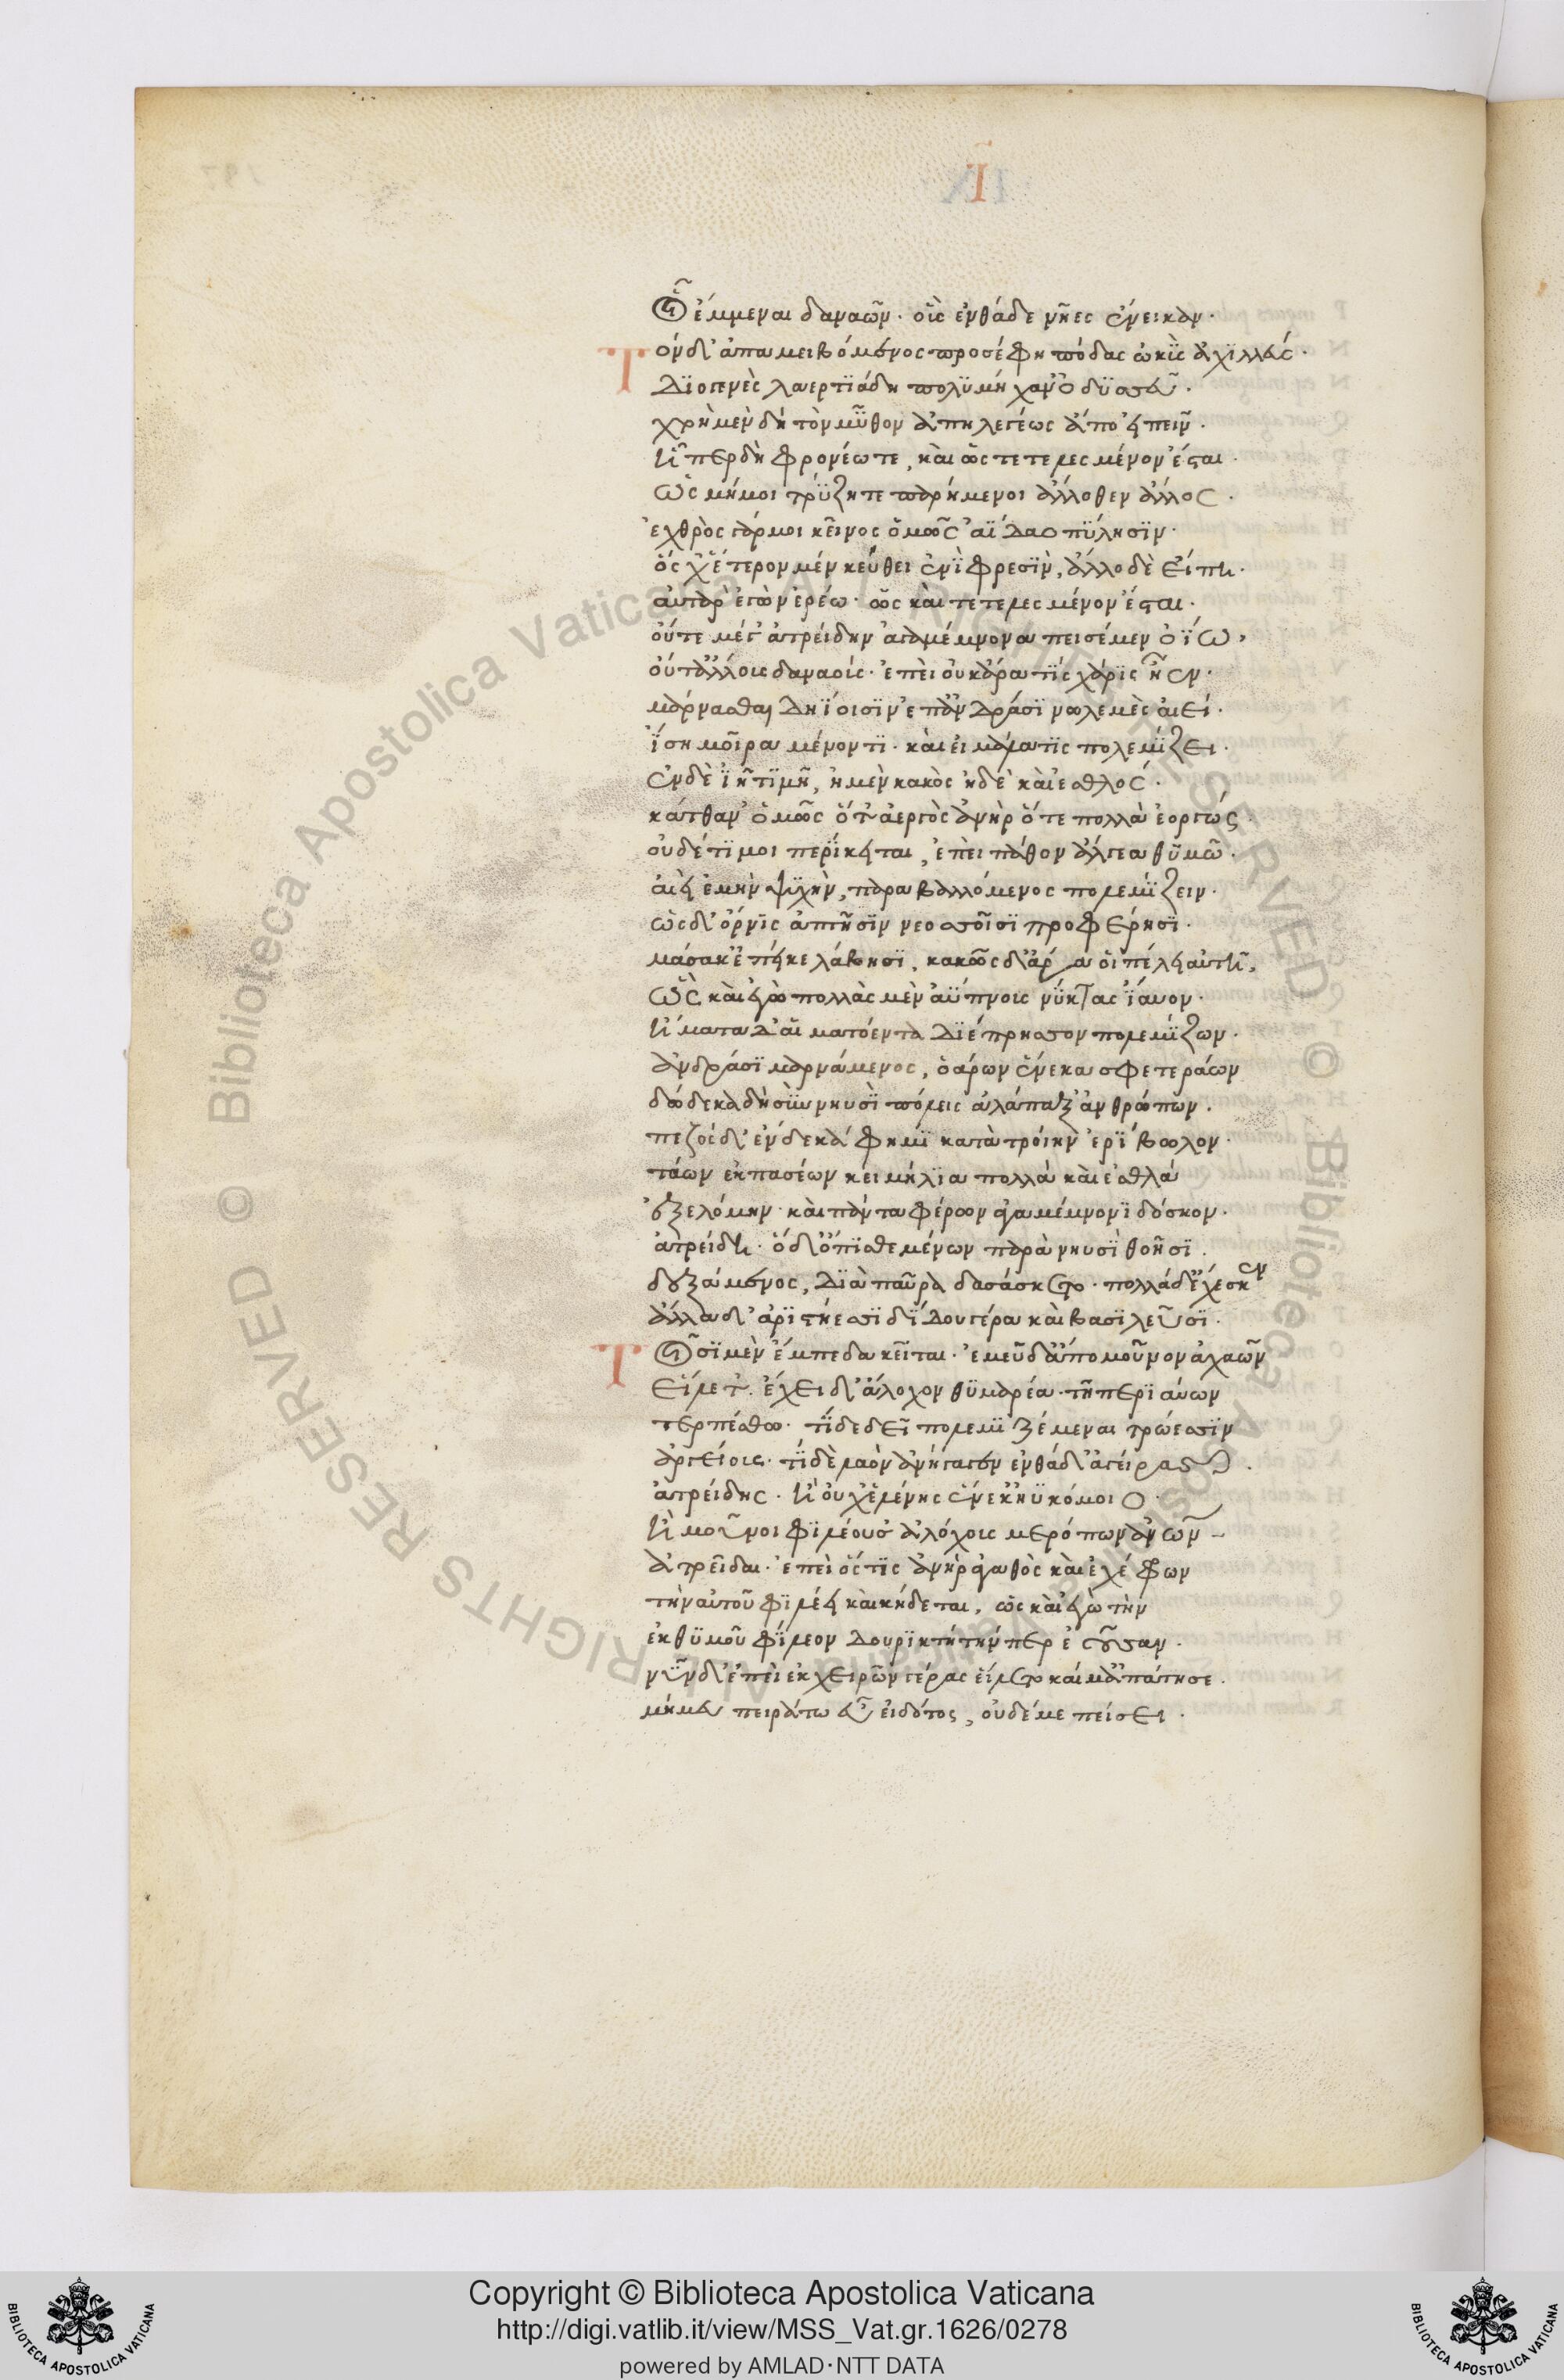 Ι
οἷ ἔμμεναι δαναῶν· οὓς ἐνθάδε νῆες ἔνεικαν·
Τὸν δ' ἀπαμειβόμενος προσέφη πόδας ὠκὺς ἀχιλλεύς·
διογενὲς λαερτιάδη πολυμήχαν' ὀδυσσεῦ·
χρὴ μὲν δὴ τὸν μῦθον ἀπηλεγέως ἀποειπεῖν·
ᾗπερ δὴ φρονέω τε, καὶ ὣς τετελεσμένον ἔσται·
ὡς μή μοι τρύζητε παρήμενοι ἄλλοθεν ἄλλος·
ἐχθρὸς γάρ μοι κεῖνος ὁμῶς ἀΐδαο πύλησιν·
ὅς χ' ἕτερον μὲν κεύθει ἐνὶ φρεσὶν, ἄλλο δὲ εἴπῃ·
αὐτὰρ ἐγὼν ἐρέω· ὡς καὶ τετελεσμένον ἔσται·
οὔτε μέγ' ἀτρείδην ἀγαμέμνονα πεισέμεν ὀΐω,
οὔτ' ἄλλους δαναούς· ἐπεὶ οὐκ ἄρα τίς χάρις ἦεν·
μάρνασθαι δηΐοισιν ἐπ' ἀνδράσι νωλεμὲς αἰεί·
ἴση μοῖρα μένοντι· καὶ εἰ μάλα τὶς πολεμίζει·
ἐν δὲ ἰῇ τιμῇ, ἠμὲν κακὸς ἠδὲ καὶ ἐσθλός·
κάτθαν' ὁμῶς ὅ τ' ἀεργὸς ἀνὴρ ὅ τε πολλὰ ἐοργώς·
οὐδέ τί μοι περίκειται, ἐπεὶ πάθον ἄλγεα θυμῷ·
αἰεὶ ἐμὴν ψυχὴν, παραβαλλόμενος πολεμίζειν·
ὡς δ' ὄρνις ἀπτῆσιν νεοσσοῖσι προφέρησι·
μάστακ' ἐπήν κε λάβησι, κακῶς δ' ἄρα οἱ πέλει αὐτῇ,
ὣς καὶ ἐγὼ πολλὰς μὲν ἀΰπνους νύκτας ἴαυον·
ἤματα δ' αἱματόεντα διέπρησσον πολεμίζων·
ἀνδράσι μαρνάμενος, ὀάρων ἕνεκα σφετεράων
δώδεκα δὴ σὺν νηυσὶ πόλεις ἀλάπαξ' ἀνθρώπων·
πεζὸς δ' ἕνδεκά φημι κατὰ τροίην ἐρίβωλον·
τάων ἐκ πασέων κειμήλια πολλὰ καὶ ἐσθλά
ἐξελόμην· καὶ πάντα φέρων ἀγαμέμνονι δόσκον·
ἀτρείδῃ· ὁ δ' ὄπισθε μένων παρὰ νηυσὶ θοῇσι·
δεξάμενος, διὰ παῦρα δασάσκετο· πολλὰ δ' ἔχεσκεν
ἄλλα δ' ἀριστήεσσι δίδου γέρα καὶ βασιλεῦσι·
Τοῖσι μὲν ἔμπεδα κεῖται· ἐμεῦ δ' ἄπο μούνου ἀχαιῶν
εἵλετ'· ἔχει δ' ἄλοχον θυμαρέα· τῇ παριαύων
τερπέσθω· τί δὲ δεῖ πολεμιζέμεναι τρώεσσιν
ἀργείους· τί δὲ λαὸν ἀνήγαγεν ἐνθάδ' ἀγείρας·
ἀτρείδης· ἦ οὐχ ἑλένης ἕνεκ' ἠϋκόμοιο·
ἦ μοῦνοι φιλέουσ' ἀλόχους μερόπων ἀνθρώπων
ἀτρεῖδαι· ἐπεὶ ὅς τις ἀνὴρ ἀγαθὸς καὶ ἐχέφρων
τὴν αὐτοῦ φιλέει καὶ κήδεται, ὡς καὶ ἐγὼ τὴν
ἐκ θυμοῦ φίλεον δουρικτήτην περ ἐοῦσαν·
νῦν δ' ἐπεὶ ἐκ χειρῶν γέρας εἵλετο καί μ' ἀπάτησε·
μή μευ πειράτω εὖ εἰδότος, οὐδέ με πείσει·
Copyright © Biblioteca Apostolica Vaticana
http://digi.vatlib.it/view/MSS_Vat.gr.1626/0278
powered by AMLAD·NTT DATA